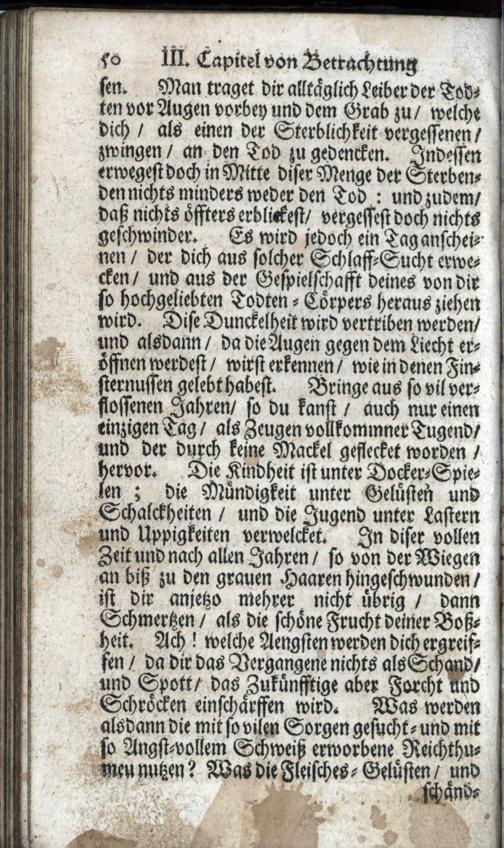 50 III. Capitel von Betrachtung
sen. Man traget dir alltäglich Leiber der Tod-
ten vor Augen vorbey und dem Grab zu / welche
dich / als einen der Sterblichkeit vergessenen /
zwingen / an den Tod zu gedencken. Indessen
erwegest doch in Mitte diser Menge der Sterben-
den nichts minders weder den Tod : und zudem /
daß nichts öffters erblickest / vergessest doch nichts
geschwinder. Es wird jedoch ein Tag anschei-
nen / der dich aus solcher Schlaff-Sucht erwe-
cken / und aus der Gespielschafft deines von dir
so hochgeliebten Todten-Cörpers heraus ziehen
wird. Dise Dunckelheit wird vertriben werden /
und alsdann / da die Augen gegen dem Liecht er-
öffnen werdest / wirst erkennen / wie in denen Fin-
sternussen gelebt habest. Bringe aus so vil ver-
flossenen Jahren / so du kanst / auch nur einen
einzigen Tag / als Zeugen vollkommner Tugend /
und der durch keine Mackel geflecket worden /
hervor. Die Kindheit ist unter Docker-Spie-
len ; die Mündigkeit unter Gelüsten und
Schalckheiten / und die Jugend unter Lastern
und Uppigkeiten verwelcket. In diser vollen
Zeit und nach allen Jahren / so von der Wiegen
an biß zu den grauen Haaren hingeschwunden /
ist dir anjetzo mehrer nicht übrig / dann
Schmertzen / als die schöne Frucht deiner Boß-
heit. Ach ! welche Aengsten werden dich ergreif-
fen / da dir das Vergangene nichts als Schand /
und Spott / das Zukünfftige aber Forcht und
Schröcken einschärffen wird. Was werden
alsdann die mit so vilen Sorgen gesucht- und mit
so Angst-vollem Schweiß erworbene Reichthu-
men nutzen ? Was die Fleisches-Gelüsten / und
schänd-